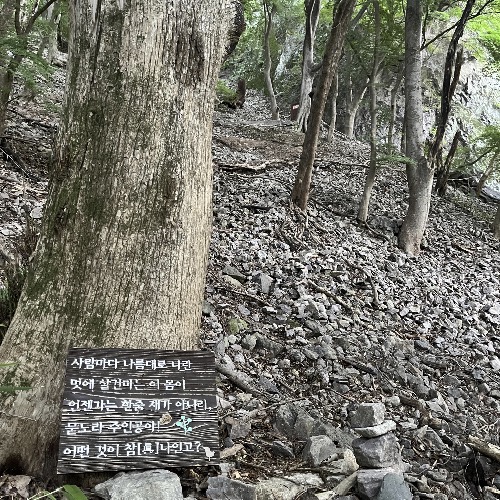 사람마다 나름대로 나란
멋에 살건마는 이 몸이
언젠가는 한줌 재가 아니리.
묻노라 주인공아!
어떤 것이 참(眞)나인고?